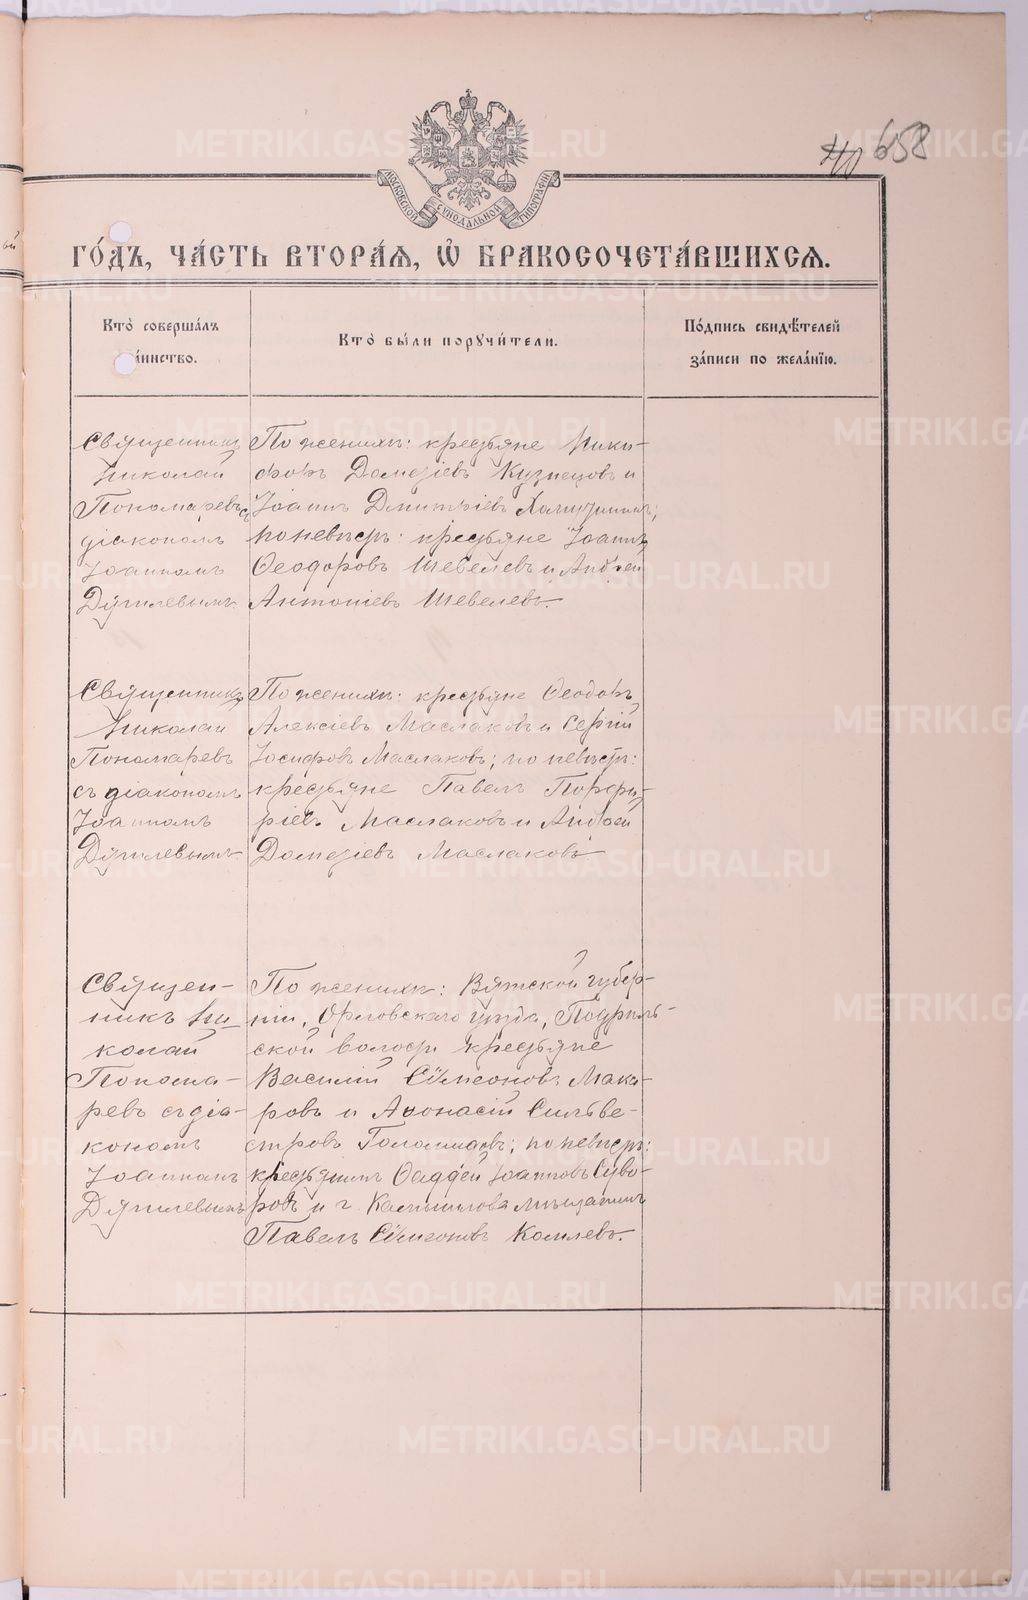 40 658
МОСКОВСКОЙ СѴНОДАЛЬНОЙ ТИПОГРАФІИ
ГО́ДЪ, ЧА́СТЬ ВТОРА́Я, Ѽ БРАКОСОЧЕТА́ВШИХСЯ.
Кто̀ соверша́лъ
а́инство.
Кто̀ бы́ли порꙋчи́тели.
По́дпись свидѣ́телей
за́писи по жела́нїю.
Священникъ
Николай
Пономаревъ съ
діакономъ
Іоанномъ
Дягилевымъ
По женихѣ: крестьяне Ники-
форъ Дометіевъ Кузнецовъ и
Іоаннъ Димитріевъ
по невѣстѣ: крестьяне Іоаннъ
Ѳеодоровъ Шевелевъ и Андрей
Антоніевъ Шевелевъ.
Священникъ
Николай
Пономаревъ
съ діакономъ
Іоанномъ
Дягилевымъ
По женихѣ: крестьяне Ѳеодоръ
Алексіевъ Маслаковъ и Сергій
Іосифовъ Маслаковъ; по невѣстѣ:
крестьяне Павелъ Порфи-
ріевъ Маслаковъ и Андрей
Дометіевъ Маслаковъ
Священ-
никъ Ни-
колай
Понома-
ревъ съ діа-
кономъ
Іоанномъ
Дягилевымъ
По женихѣ: Вятской губер-
ніи, Орловскаго уѣзда,
ской волости крестьяне
Василій Сѵмеоновъ Мака-
ровъ и Аѳонасій Сильве-
стровъ по невѣстѣ:
крестьянинъ Ѳаддей Іоанновъ Суво-
ровъ и г. Камышлова мѣщанинъ
Павелъ Сѵмеоновъ Комлевъ.
METRIKI.GASO-URAL.RU